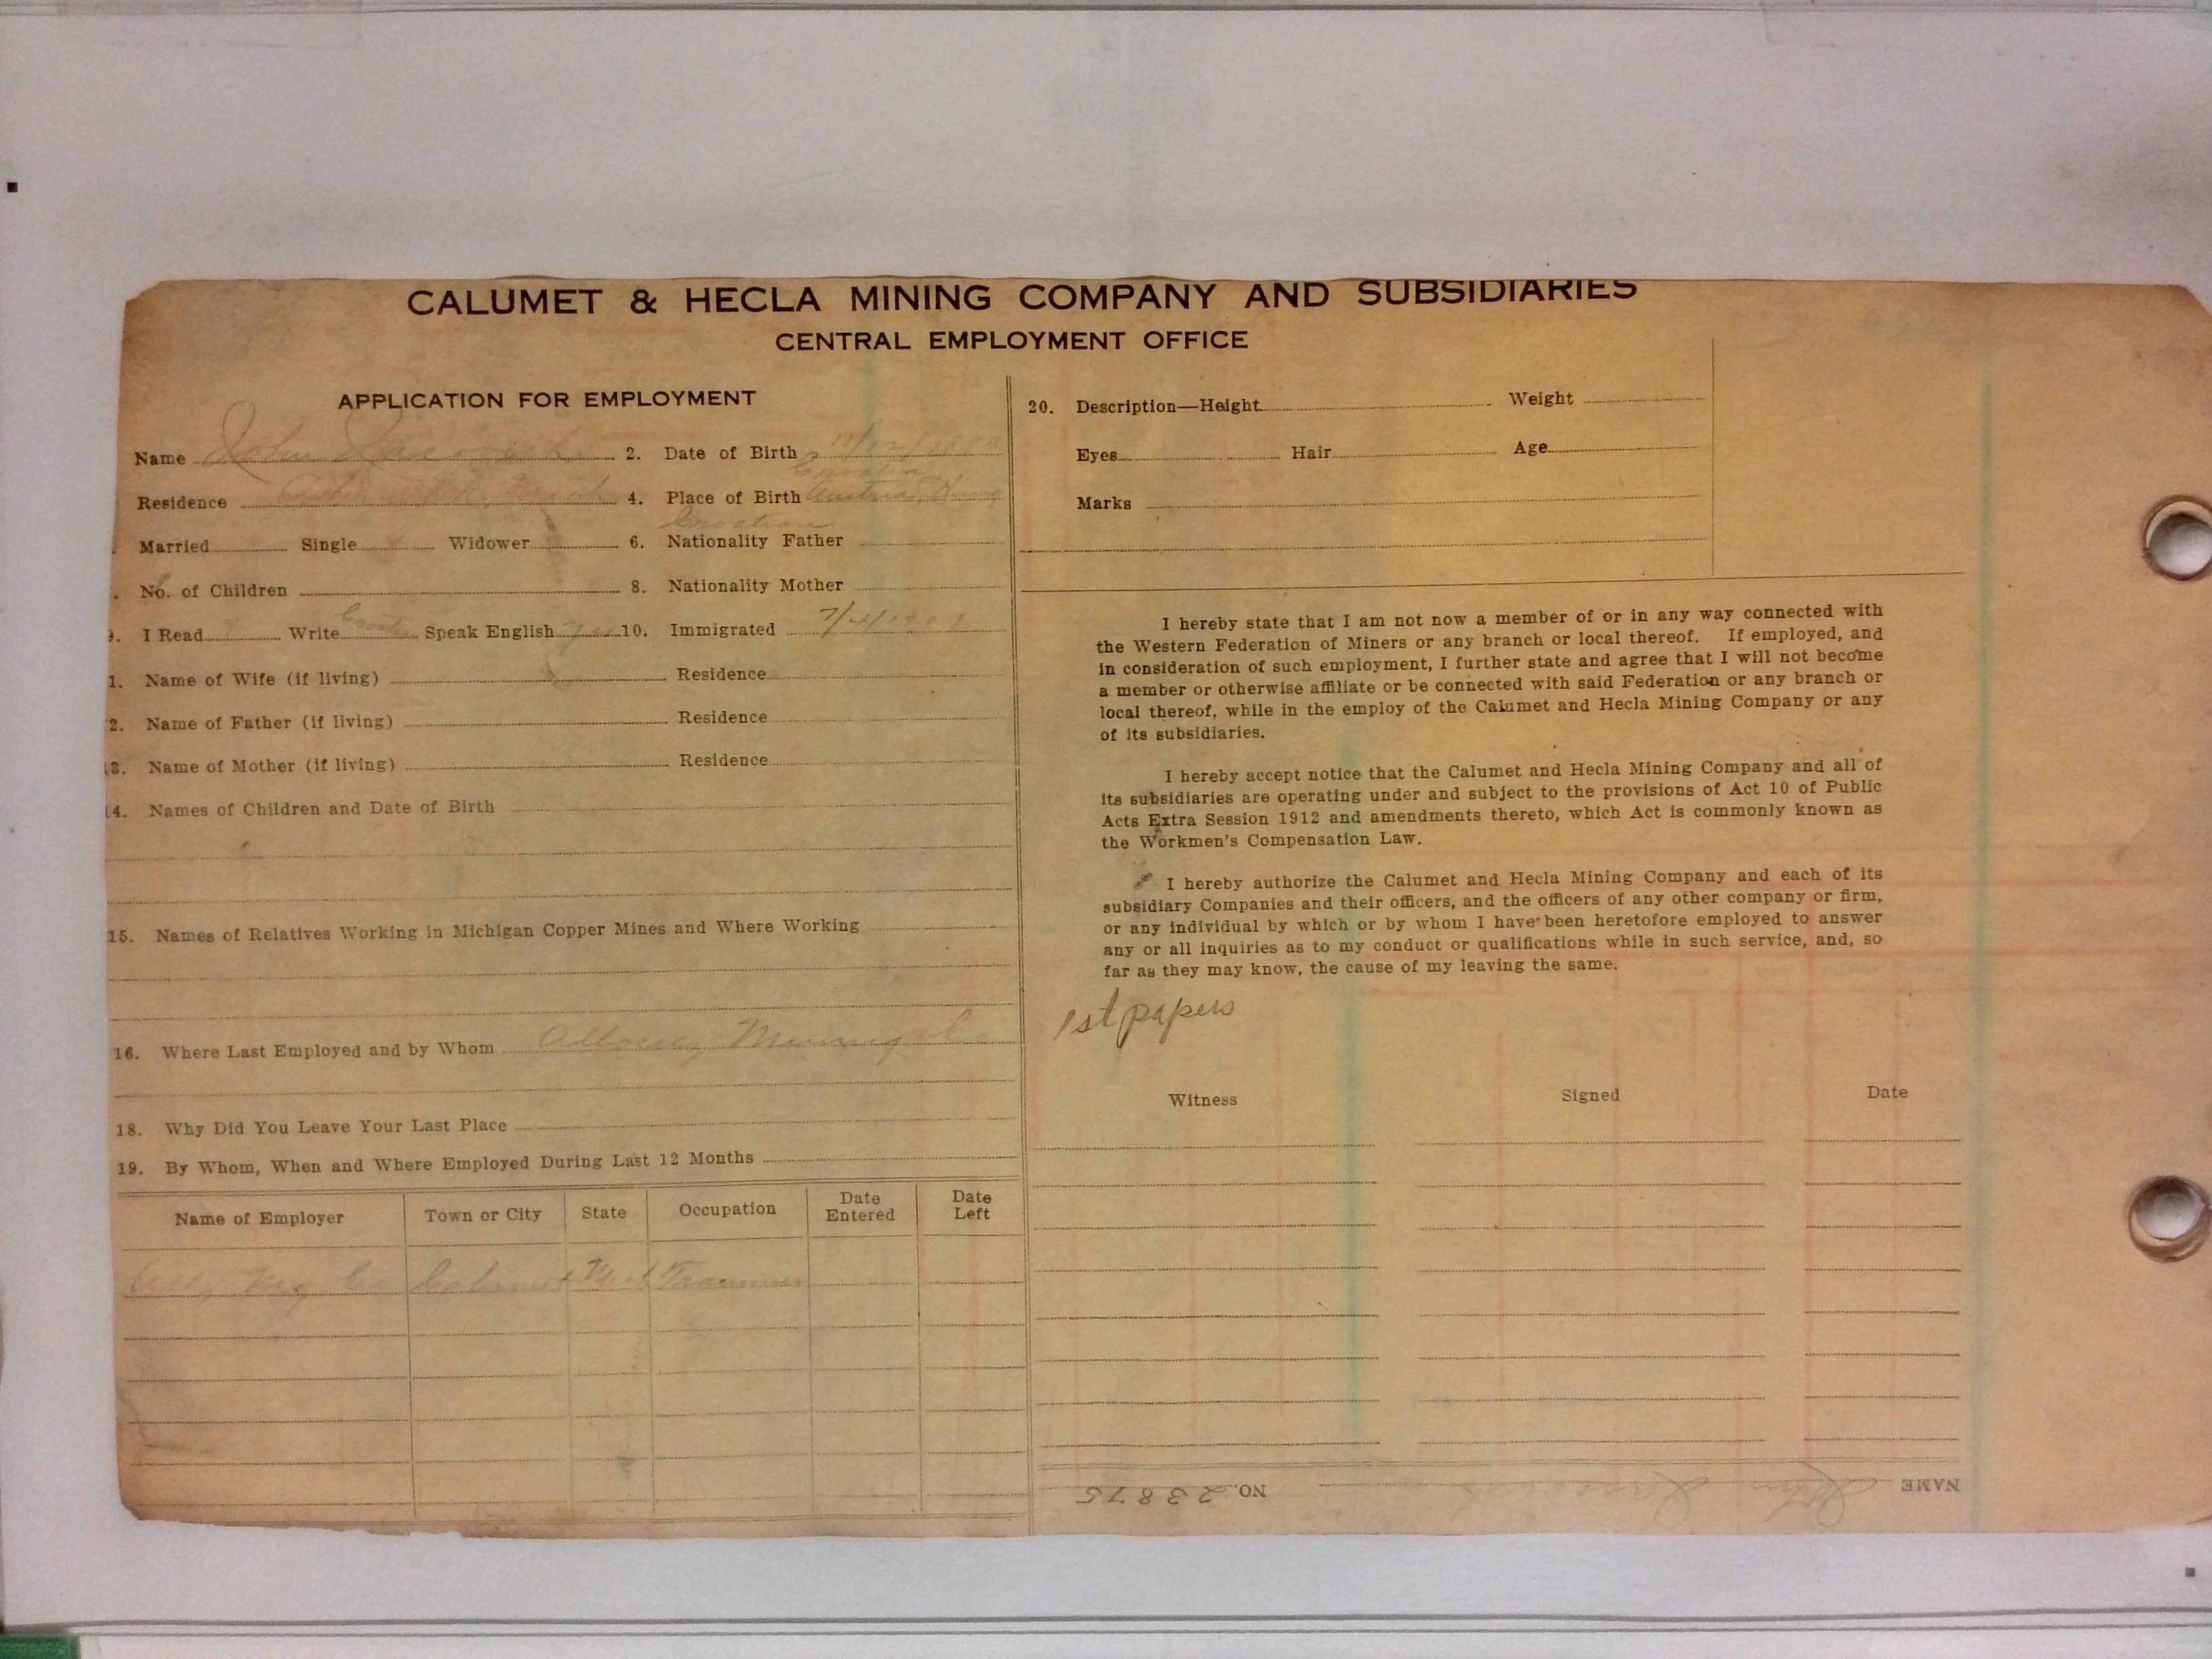 CALUMET & HECLA MINING COMPANY AND SUBSIDIARIES
CENTRAL EMPLOYMENT OFFICE
APPLICATION FOR EMPLOYMENT
Name John 2. Date of Birth
Croatia
Residence Mich 4. Place of Birth Austria
Croatian
Married Single Widower 6. Nationality Father
No. of Children 8. Nationality Mother
9. I Read Write Speak English yes 10. Immigrated 7/4/1907
1. Name of Wife (if living) Residence
2. Name of Father (if living) Residence
13. Name of Mother (if living) Residence
14. Names of Children and Date of Birth
15. Names of Relatives Working in Michigan Copper Mines and Where Working
16. Where Last Employed and by Whom Allouez Mining Co
18. Why Did You Leave Your Last Place
19. By Whom, When and Where Employed During Last 12 Months
Name of Employer Town or City State Occupation Date Entered Date Left
Allz Mg Co Calumet Mich Trammer
20. Description—Height Weight
Eyes Hair Age
Marks
I hereby state that I am not now a member of or in any way connected with
the Western Federation of Miners or any branch or local thereof. If employed, and
in consideration of such employment, I further state and agree that I will not become
a member or otherwise affiliate or be connected with said Federation or any branch or
local thereof, while in the employ of the Calumet and Hecla Mining Company or any
of its subsidiaries.
I hereby accept notice that the Calumet and Hecla Mining Company and all of
its subsidiaries are operating under and subject to the provisions of Act 10 of Public
Acts Extra Session 1912 and amendments thereto, which Act is commonly known as
the Workmen's Compensation Law.
I hereby authorize the Calumet and Hecla Mining Company and each of its
subsidiary Companies and their officers, and the officers of any other company or firm,
or any individual by which or by whom I have been heretofore employed to answer
any or all inquiries as to my conduct or qualifications while in such service, and, so
far as they may know, the cause of my leaving the same.
1st papers
Witness Signed Date
NAME John NO. 23875